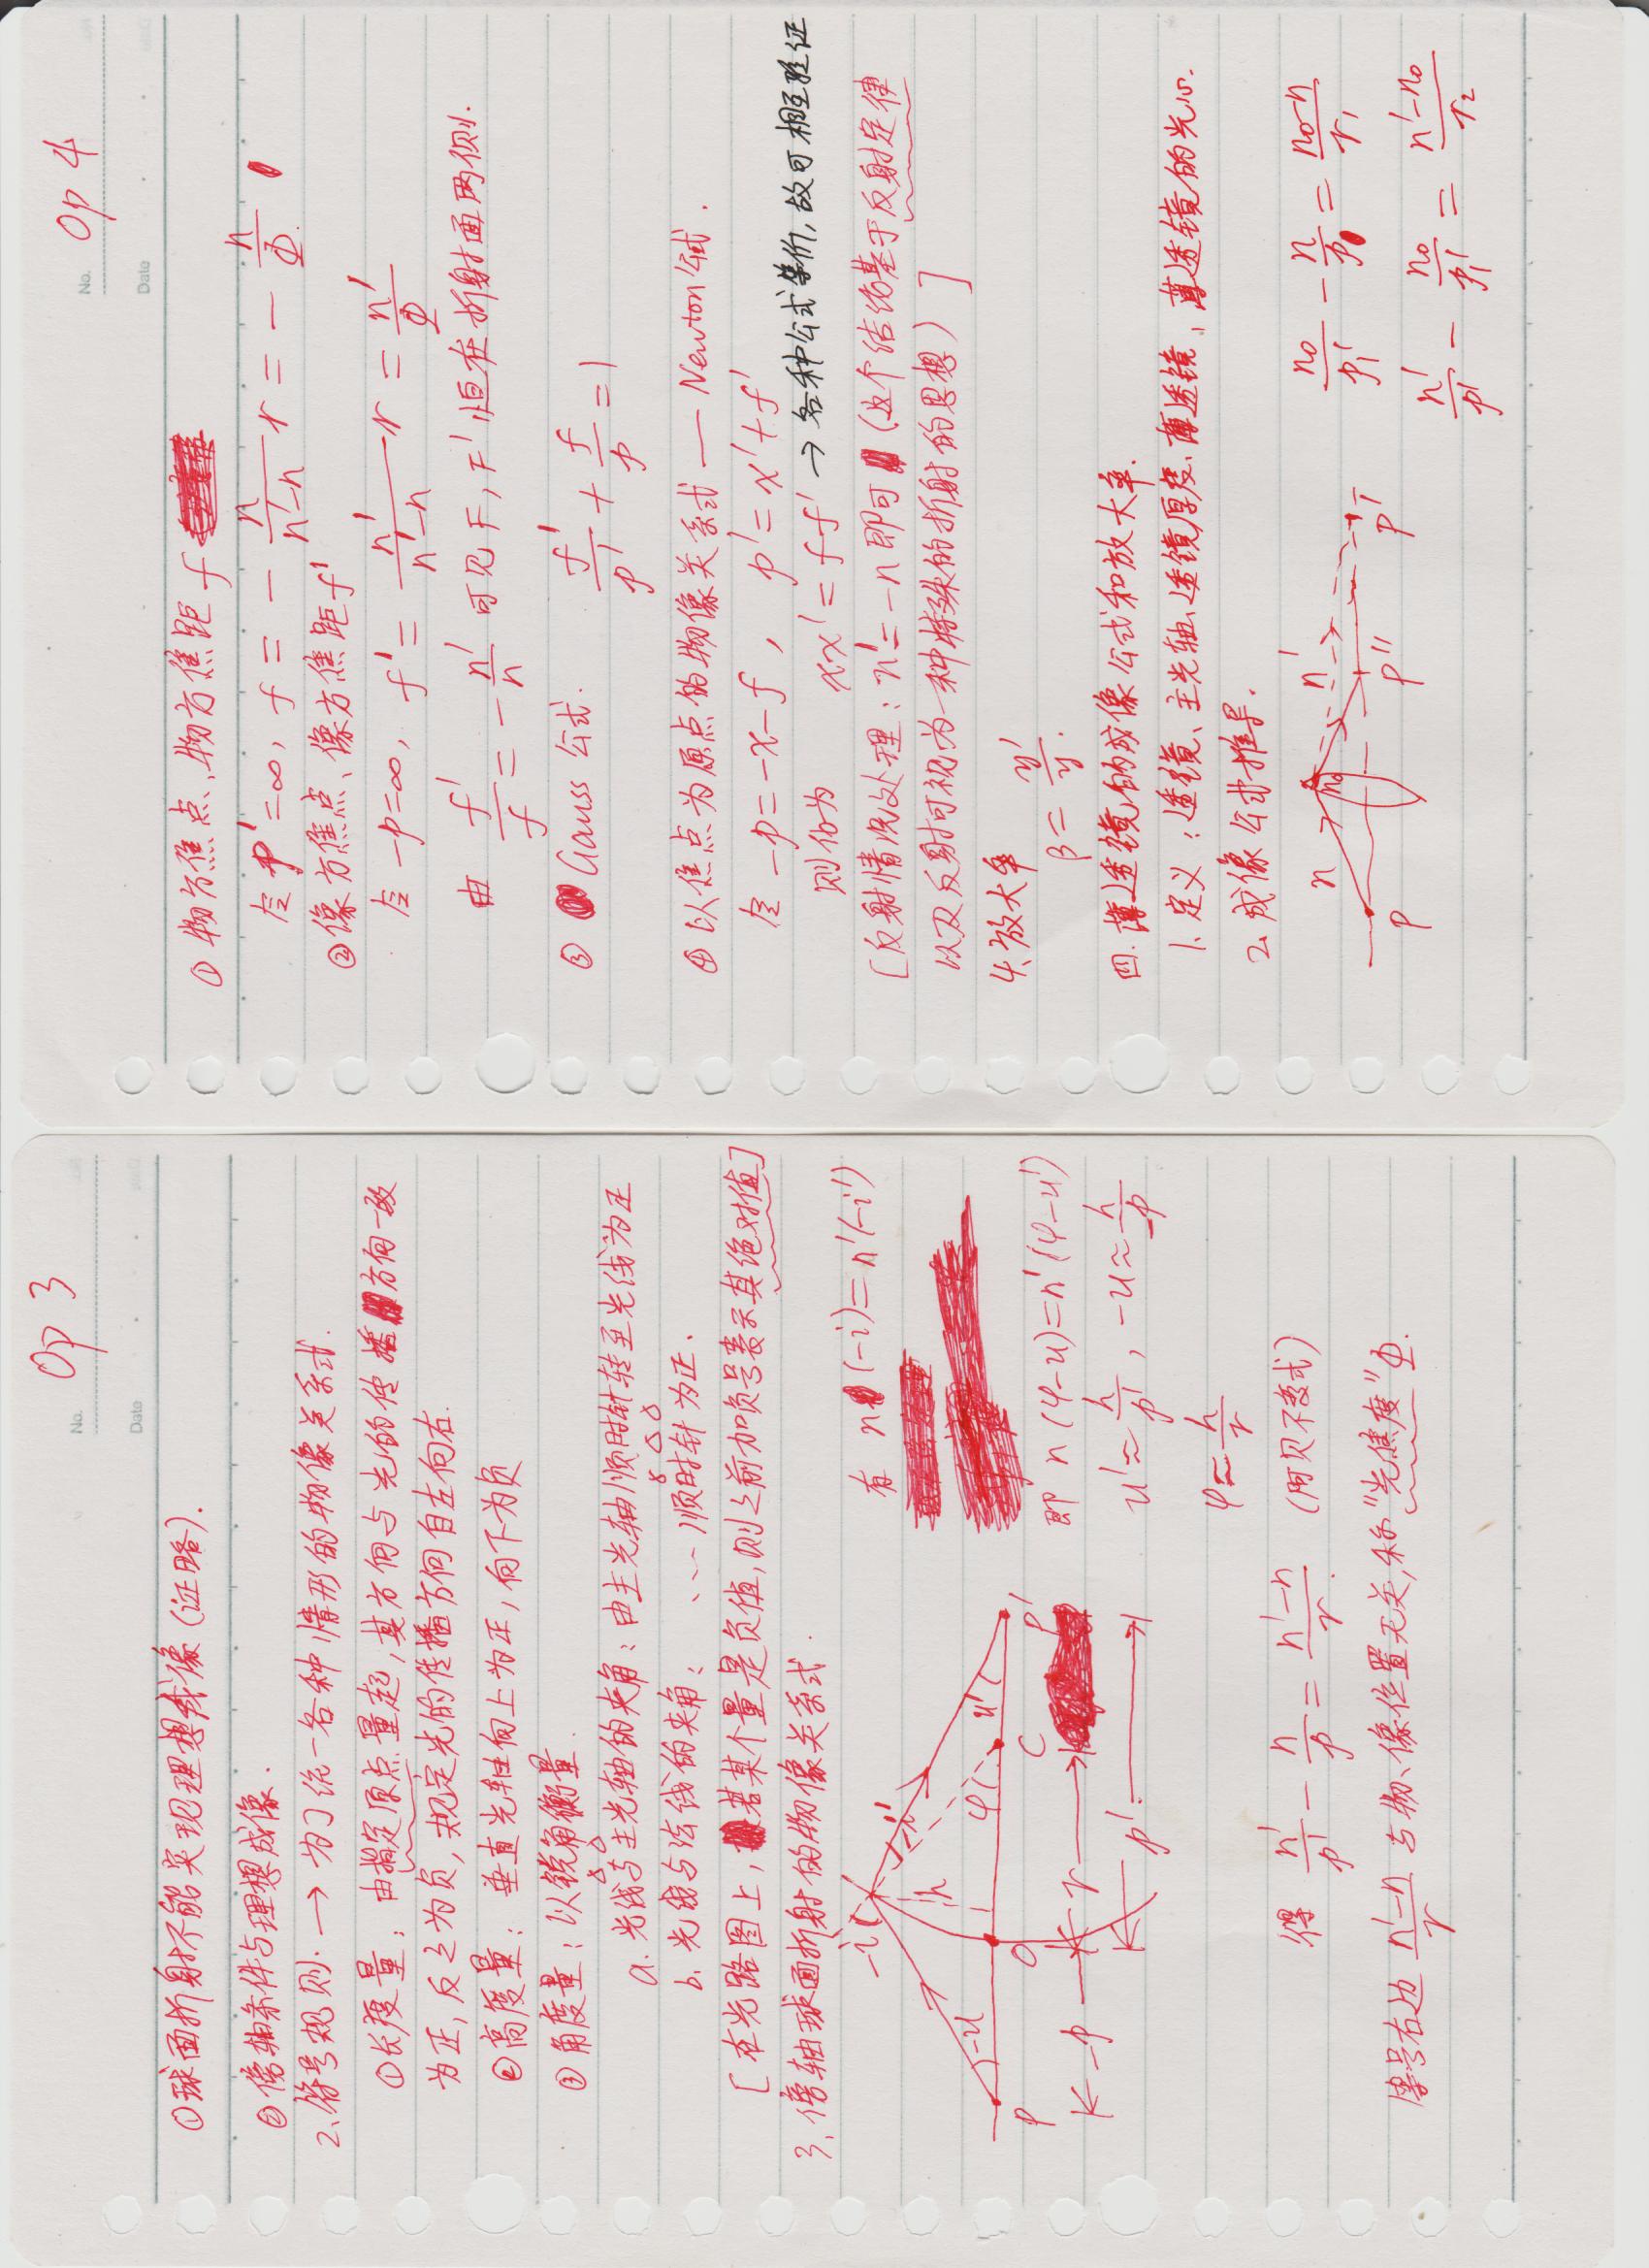 No. Op 3
Date
①球面折射不能实现理想成像(证略).
②傍轴条件与理想成像.
2、符号规则. → 为了统一各种情形的物像关系式.
①长度量: 由指定原点量起,其方向与光的传播方向一致
为正,反之为负,规定光的传播方向自左向右.
②高度量: 垂直光轴向上为正,向下为负
③角度量: 以锐角衡量.
a. 光线与主光轴的夹角: 由主光轴顺时针转至光线为正
b. 光线与法线的夹角: ....顺时针为正.
[在光路图上, 若某个量是负值,则之前加负号表示其绝对值]
3、傍轴球面折射的物像关系式.
-i -i' h -u φ u'
P O C P'
-p r
p'
有 n(-i)=n'(-i')
即 n(φ-u)=n'(φ-u')
u'≈h/p', -u≈h/-p
φ≈h/r
得 n'/p' - n/p = (n'-n)/r. (阿贝不变式)
等号右边 (n'-n)/r 与物、像位置无关,称"光焦度"Φ.
No. Op 4
Date
① 物方焦点、物方焦距 f
令 p'=∞, f = - n/(n'-n) r = - n/Φ.
②像方焦点、像方焦距f'
令 -p=∞, f' = n'/(n'-n) r = n'/Φ
由 f'/f = - n'/n 可见 F, F' 恒在折射面两侧.
③ Gauss 公式. f'/p' + f/p = 1
④以焦点为原点的物像关系式 — Newton公式.
令 -p=-x-f, p'=x'+f'
则化为 xx'=ff' → 各种公式等价,故可相互验证
[反射情况处理: n'=-n即可 (这个结论基于反射定律
以及反射可视为一种特殊的折射的思想)]
4、放大率
β = y'/y.
四. 薄透镜的成像公式和放大率.
1、定义: 透镜、主光轴、透镜厚度、薄透镜、薄透镜的光心.
2、成像公式推导.
n n₀ n'
P P'' P'
n₀/p₁' - n/p = (n₀-n)/r₁
n'/p' - n₀/p₁' = (n'-n₀)/r₂